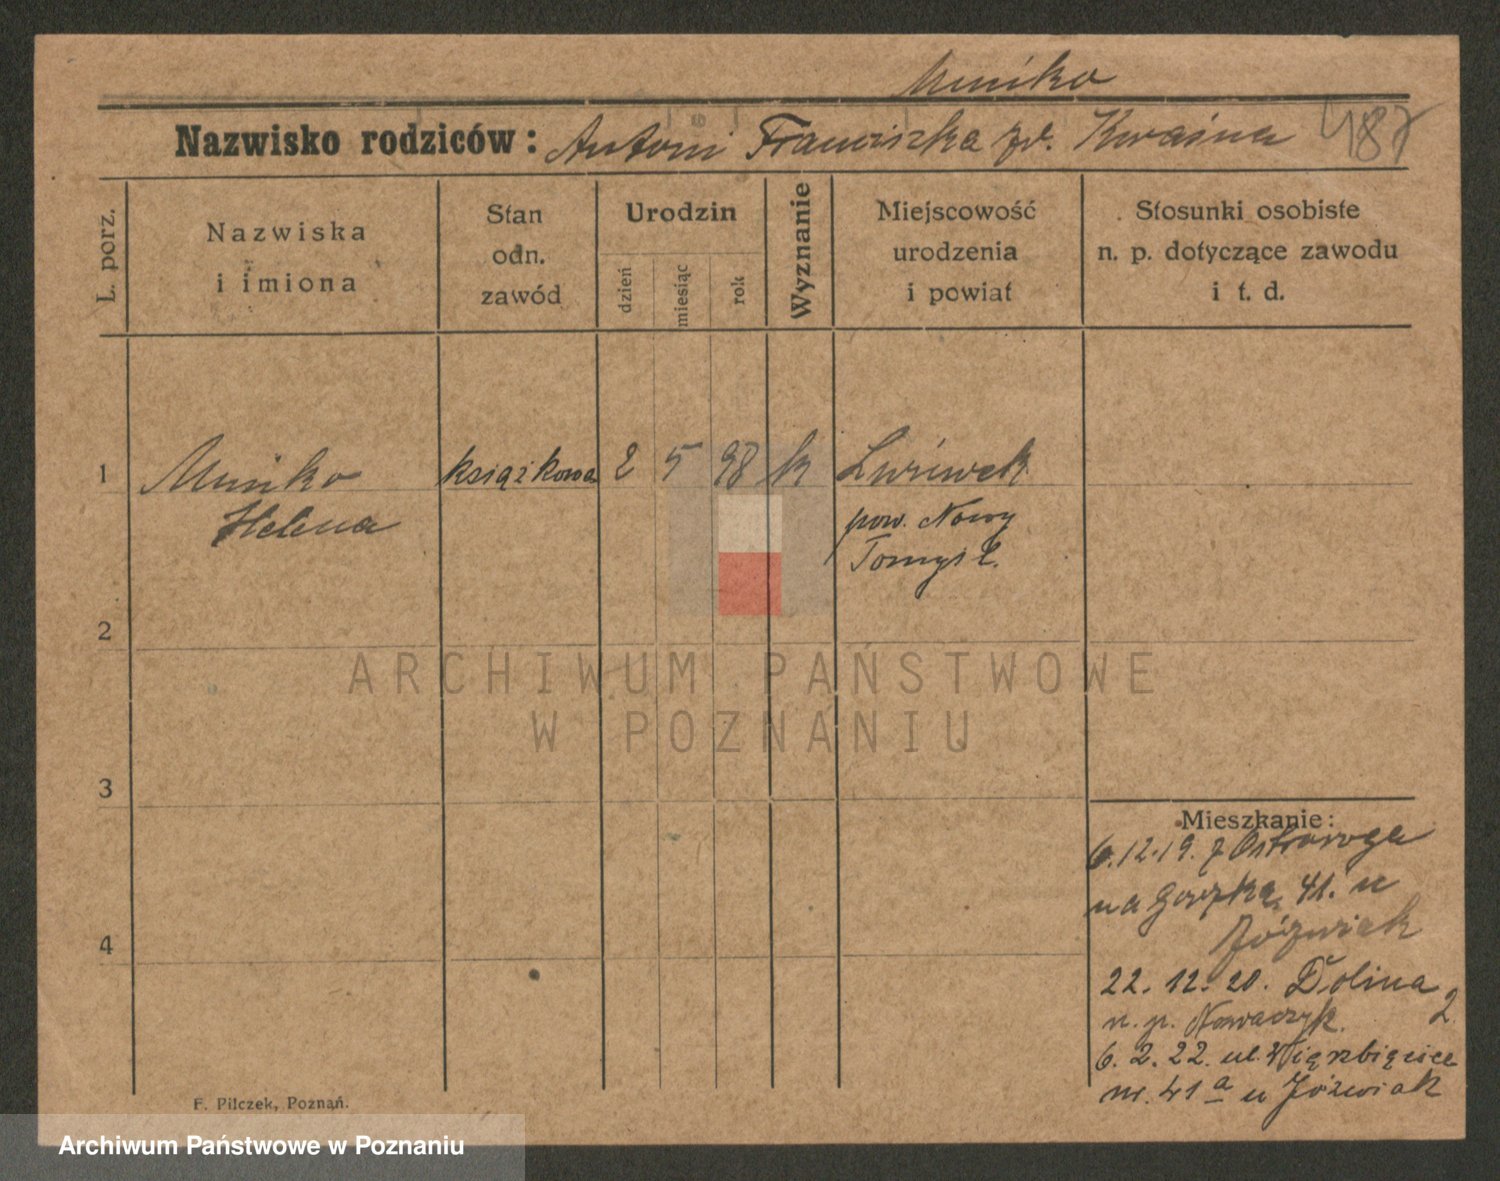 Muńko
Nazwisko rodziców: Antoni Franciszka zd. Kwaśna 487
L. porz.
Nazwiska
i imiona
Stan
odn.
zawód
Urodzin
dzień
miesiąc
rok
Wyznanie
Miejscowość
urodzenia
i powiat
Stosunki osobiste
n. p. dotyczące zawodu
i t. d.
1
Muńko
Helena
książkowa
2 5 98 k
pow. Nowy
Tomyśl.
2
3
4
Mieszkanie:
6.12.19. z Ostroroga
na 41. u
Jóźwiak
22. 12. 20. Dolina 2
n. p. Nowaczyk.
6. 2. 22. ul. Wierzbięcice
nr. 41a u Jóźwiak
F. Pilczek, Poznań.
ARCHIWUM PAŃSTWOWE
W POZNANIU
Archiwum Państwowe w Poznaniu